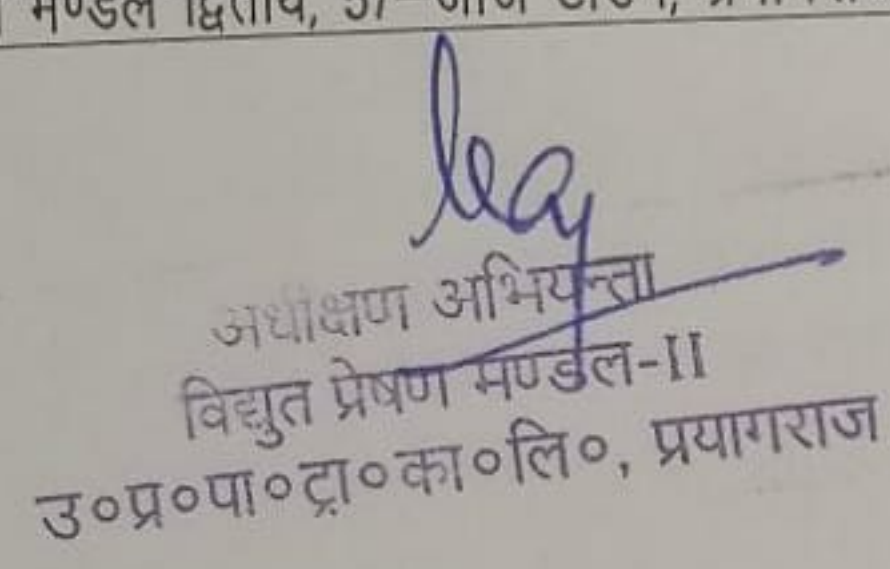 मण्डल द्वितीय, 57- जार्ज टाउन,
अधीक्षण अभियन्ता
विद्युत प्रेषण मण्डल-II
उ०प्र०पा०ट्रा०का०लि०, प्रयागराज